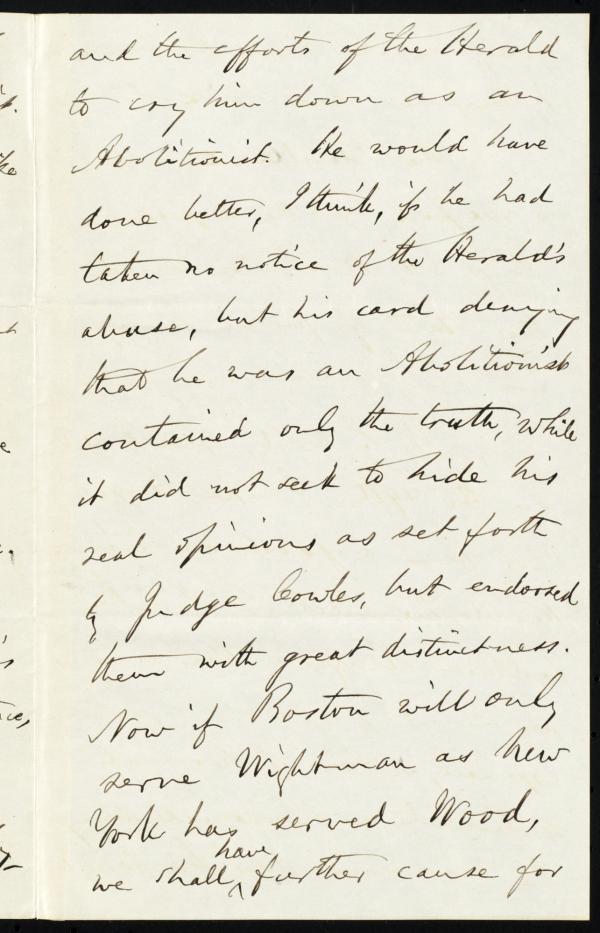 and the efforts of the Herald
to cry him down as an
Abolitionist. He would have
done better, I think, if he had
taken no notice of the Herald's
abuse, but his card denying
that he was an Abolitionist
contained only the truth, while
it did not seek to hide his
real opinions as set forth
by Judge Cowles, but endorsed
them with great distinctness.
Now if Boston will only
serve Wightman as New
York has served Wood,
have
we shall ^ further cause for